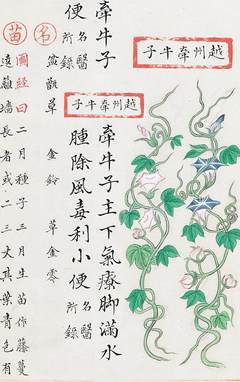 越州牽牛子
牽牛子
便
名醫
所錄
越州牽牛子
牽牛子主下氣療脚滿水
腫除風毒利小便
名醫
所錄
名
草 金鈴 草金零
苗
圖經曰二月種子三月生苗作藤蔓
遶籬墻長者或二三丈其葉青色有